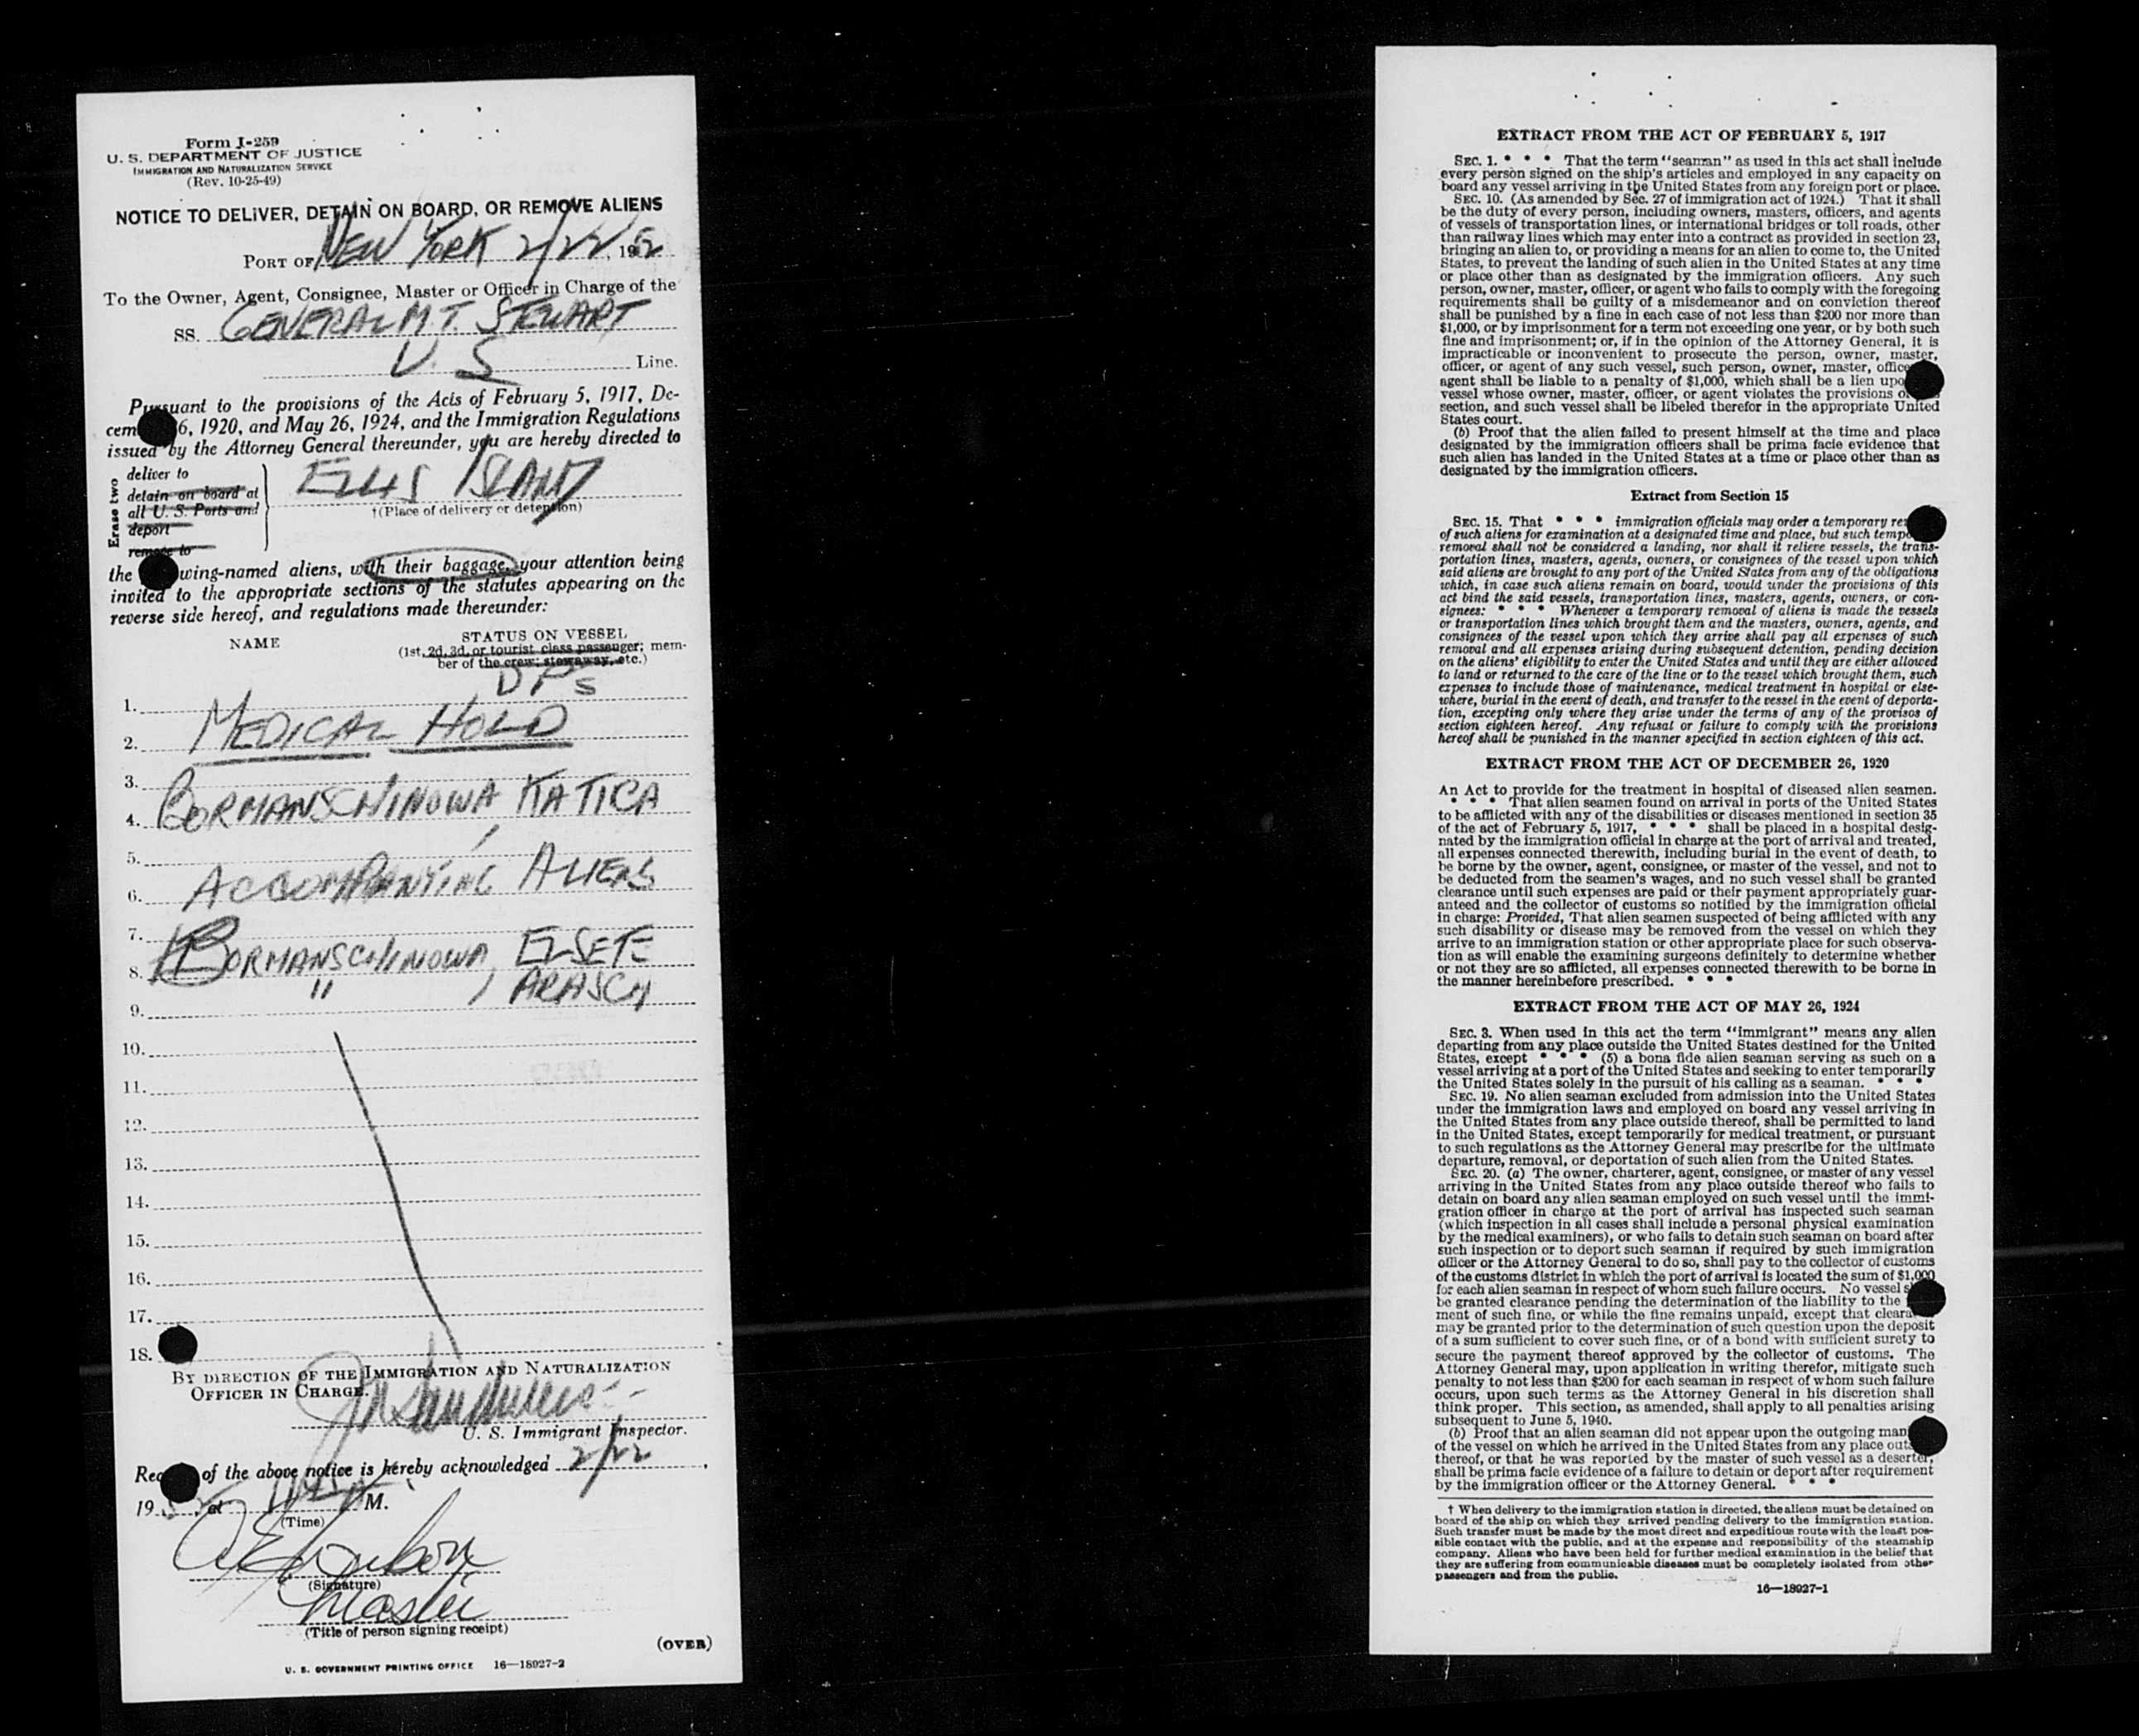 Form I-259
U. S. DEPARTMENT OF JUSTICE
IMMIGRATION AND NATURALIZATION SERVICE
(Rev. 10-25-49)
NOTICE TO DELIVER, DETAIN ON BOARD, OR REMOVE ALIENS
PORT OF NEW YORK 2/22, 1952
To the Owner, Agent, Consignee, Master or Officer in Charge of the
SS. GENERAL M T. STEWART
U. S Line.
Pursuant to the provisions of the Acts of February 5, 1917, De-
cem 6, 1920, and May 26, 1924, and the Immigration Regulations
issued by the Attorney General thereunder, you are hereby directed to
Erase two
deliver to
detain on board at
all U. S. Ports and
deport
remove to
ELLIS ISLAND
†(Place of delivery or detention)
the wing-named aliens, with their baggage, your attention being
invited to the appropriate sections of the statutes appearing on the
reverse side hereof, and regulations made thereunder:
NAME
STATUS ON VESSEL
(1st, 2d, 3d, or tourist class passenger; mem-
ber of the crew; stowaway, etc.)
DPs
1.
2. MEDICAL HOLD
3.
4. BORMANSCHINOWA KATICA
5.
6. ACCOMPANYING ALIENS
7.
8. BORMANSCHINOWA, ELSETE
" , ARASCH
9.
10.
11.
12.
13.
14.
15.
16.
17.
18.
BY DIRECTION OF THE IMMIGRATION AND NATURALIZATION
OFFICER IN CHARGE.
U. S. Immigrant Inspector.
Rec of the above notice is hereby acknowledged 2/22,
195 at M.
(Time)
(Signature)
Master
(Title of person signing receipt)
(OVER)
U. S. GOVERNMENT PRINTING OFFICE 16—18027-2
EXTRACT FROM THE ACT OF FEBRUARY 5, 1917
SEC. 1. * * * That the term "seaman" as used in this act shall include
every person signed on the ship's articles and employed in any capacity on
board any vessel arriving in the United States from any foreign port or place.
SEC. 10. (As amended by Sec. 27 of immigration act of 1924.) That it shall
be the duty of every person, including owners, masters, officers, and agents
of vessels of transportation lines, or international bridges or toll roads, other
than railway lines which may enter into a contract as provided in section 23,
bringing an alien to, or providing a means for an alien to come to, the United
States, to prevent the landing of such alien in the United States at any time
or place other than as designated by the immigration officers. Any such
person, owner, master, officer, or agent who fails to comply with the foregoing
requirements shall be guilty of a misdemeanor and on conviction thereof
shall be punished by a fine in each case of not less than $200 nor more than
$1,000, or by imprisonment for a term not exceeding one year, or by both such
fine and imprisonment; or, if in the opinion of the Attorney General, it is
impracticable or inconvenient to prosecute the person, owner, master,
officer, or agent of any such vessel, such person, owner, master, office
agent shall be liable to a penalty of $1,000, which shall be a lien upo
vessel whose owner, master, officer, or agent violates the provisions o
section, and such vessel shall be libeled therefor in the appropriate United
States court.
(b) Proof that the alien failed to present himself at the time and place
designated by the immigration officers shall be prima facie evidence that
such alien has landed in the United States at a time or place other than as
designated by the immigration officers.
Extract from Section 15
SEC. 15. That * * * immigration officials may order a temporary re
of such aliens for examination at a designated time and place, but such tempo
removal shall not be considered a landing, nor shall it relieve vessels, the trans-
portation lines, masters, agents, owners, or consignees of the vessel upon which
said aliens are brought to any port of the United States from any of the obligations
which, in case such aliens remain on board, would under the provisions of this
act bind the said vessels, transportation lines, masters, agents, owners, or con-
signees: * * * Whenever a temporary removal of aliens is made the vessels
or transportation lines which brought them and the masters, owners, agents, and
consignees of the vessel upon which they arrive shall pay all expenses of such
removal and all expenses arising during subsequent detention, pending decision
on the aliens' eligibility to enter the United States and until they are either allowed
to land or returned to the care of the line or to the vessel which brought them, such
expenses to include those of maintenance, medical treatment in hospital or else-
where, burial in the event of death, and transfer to the vessel in the event of deporta-
tion, excepting only where they arise under the terms of any of the provisos of
section eighteen hereof. Any refusal or failure to comply with the provisions
hereof shall be punished in the manner specified in section eighteen of this act.
EXTRACT FROM THE ACT OF DECEMBER 26, 1920
An Act to provide for the treatment in hospital of diseased alien seamen.
* * * That alien seamen found on arrival in ports of the United States
to be afflicted with any of the disabilities or diseases mentioned in section 35
of the act of February 5, 1917, * * * shall be placed in a hospital desig-
nated by the immigration official in charge at the port of arrival and treated,
all expenses connected therewith, including burial in the event of death, to
be borne by the owner, agent, consignee, or master of the vessel, and not to
be deducted from the seamen's wages, and no such vessel shall be granted
clearance until such expenses are paid or their payment appropriately guar-
anteed and the collector of customs so notified by the immigration official
in charge: Provided, That alien seamen suspected of being afflicted with any
such disability or disease may be removed from the vessel on which they
arrive to an immigration station or other appropriate place for such observa-
tion as will enable the examining surgeons definitely to determine whether
or not they are so afflicted, all expenses connected therewith to be borne in
the manner hereinbefore prescribed. * * *
EXTRACT FROM THE ACT OF MAY 26, 1924
SEC. 3. When used in this act the term "immigrant" means any alien
departing from any place outside the United States destined for the United
States, except * * * (5) a bona fide alien seaman serving as such on a
vessel arriving at a port of the United States and seeking to enter temporarily
the United States solely in the pursuit of his calling as a seaman. * * *
SEC. 19. No alien seaman excluded from admission into the United States
under the immigration laws and employed on board any vessel arriving in
the United States from any place outside thereof, shall be permitted to land
in the United States, except temporarily for medical treatment, or pursuant
to such regulations as the Attorney General may prescribe for the ultimate
departure, removal, or deportation of such alien from the United States.
SEC. 20. (a) The owner, charterer, agent, consignee, or master of any vessel
arriving in the United States from any place outside thereof who fails to
detain on board any alien seaman employed on such vessel until the immi-
gration officer in charge at the port of arrival has inspected such seaman
(which inspection in all cases shall include a personal physical examination
by the medical examiners), or who fails to detain such seaman on board after
such inspection or to deport such seaman if required by such immigration
officer or the Attorney General to do so, shall pay to the collector of customs
of the customs district in which the port of arrival is located the sum of $1,000
for each alien seaman in respect of whom such failure occurs. No vessel s
be granted clearance pending the determination of the liability to the
ment of such fine, or while the fine remains unpaid, except that cleara
may be granted prior to the determination of such question upon the deposit
of a sum sufficient to cover such fine, or of a bond with sufficient surety to
secure the payment thereof approved by the collector of customs. The
Attorney General may, upon application in writing therefor, mitigate such
penalty to not less than $200 for each seaman in respect of whom such failure
occurs, upon such terms as the Attorney General in his discretion shall
think proper. This section, as amended, shall apply to all penalties arising
subsequent to June 5, 1940.
(b) Proof that an alien seaman did not appear upon the outgoing man
of the vessel on which he arrived in the United States from any place outs
thereof, or that he was reported by the master of such vessel as a deserter,
shall be prima facie evidence of a failure to detain or deport after requirement
by the immigration officer or the Attorney General. * * *
† When delivery to the immigration station is directed, the aliens must be detained on
board of the ship on which they arrived pending delivery to the immigration station.
Such transfer must be made by the most direct and expeditious route with the least pos-
sible contact with the public, and at the expense and responsibility of the steamship
company. Aliens who have been held for further medical examination in the belief that
they are suffering from communicable diseases must be completely isolated from other
passengers and from the public.
16—18027-1